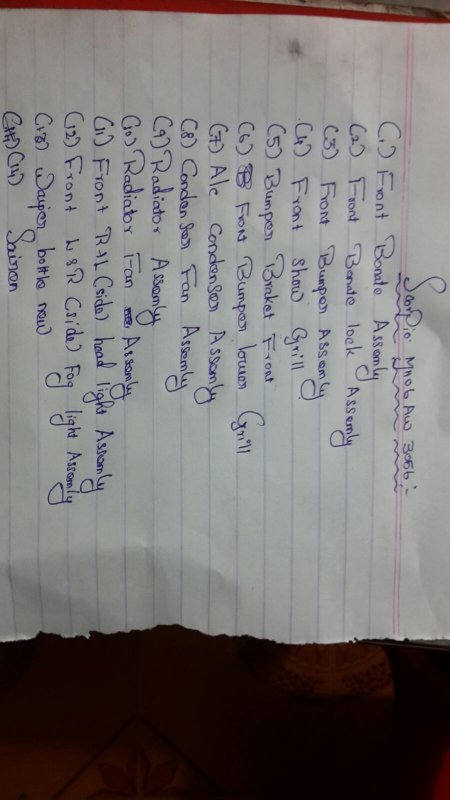 Scorpio MH06AW 3056:-
(1) Front Bonate Assemly
(2) Front Bonate lock Assemly
(3) Front Bumper Assemly
(4) Front Show Grill
(5) Bumper Braket Front
(6) Front Bumper lower Grill
(7) A/c Condenser Assemly
(8) Condenser Fan Assemly
(9) Radiator Assemly
(10) Radiator Fan Assemly
(11) Front R&L (side) head light Assemly
(12) Front L&R (side) Fog light Assemly
(13) Waiper bottle new
(14) Sairen